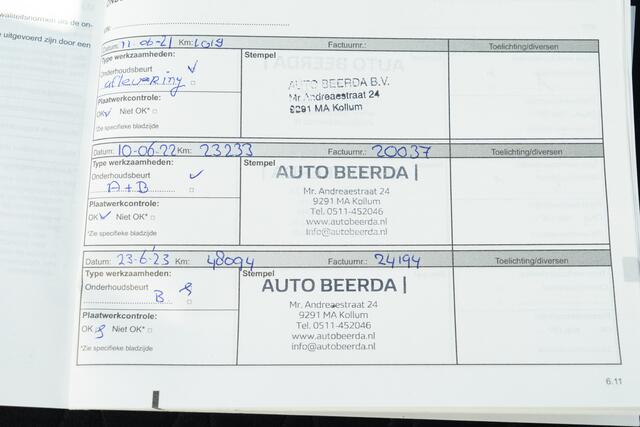 waliteitsnormen als de on-
e uitgevoerd zijn door een
Datum: 11-06-21 Km: 1019 Factuurnr.: Toelichting/diversen
Type werkzaamheden: Stempel
Onderhoudsbeurt ✓
aflevering
Plaatwerkcontrole:
OK✓ Niet OK* □
*Zie specifieke bladzijde
AUTO BEERDA B.V.
Mr. Andreaestraat 24
9291 MA Kollum
Datum: 10-06-22 Km: 23233 Factuurnr.: 20037 Toelichting/diversen
Type werkzaamheden: Stempel
Onderhoudsbeurt ✓
A+B □
Plaatwerkcontrole:
OK✓ Niet OK* □
*Zie specifieke bladzijde
AUTO BEERDA |
Mr. Andreaestraat 24
9291 MA Kollum
Tel. 0511-452046
www.autobeerda.nl
info@autobeerda.nl
Datum: 23-6-23 Km: 48094 Factuurnr.: 24194 Toelichting/diversen
Type werkzaamheden: Stempel
Onderhoudsbeurt
B □
Plaatwerkcontrole:
OK Niet OK* □
*Zie specifieke bladzijde
AUTO BEERDA |
Mr. Andreaestraat 24
9291 MA Kollum
Tel. 0511-452046
www.autobeerda.nl
info@autobeerda.nl
6.11